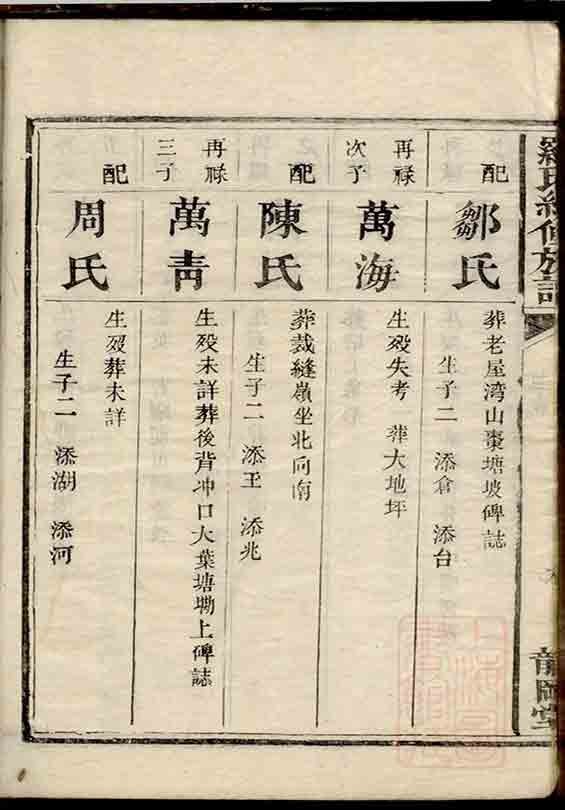 配
鄒氏
葬老屋湾山棗塘坡碑誌
生子二 添倉 添台
再祿
次子
萬海
生殁失考 葬大地坪
配
陳氏
葬裁縫嶺坐北向南
生子二 添王 添兆
再祿
三子
萬青
生殁未詳葬後背冲口大葉塘墈上碑誌
配
周氏
生殁葬未詳
生子二 添湖 添河